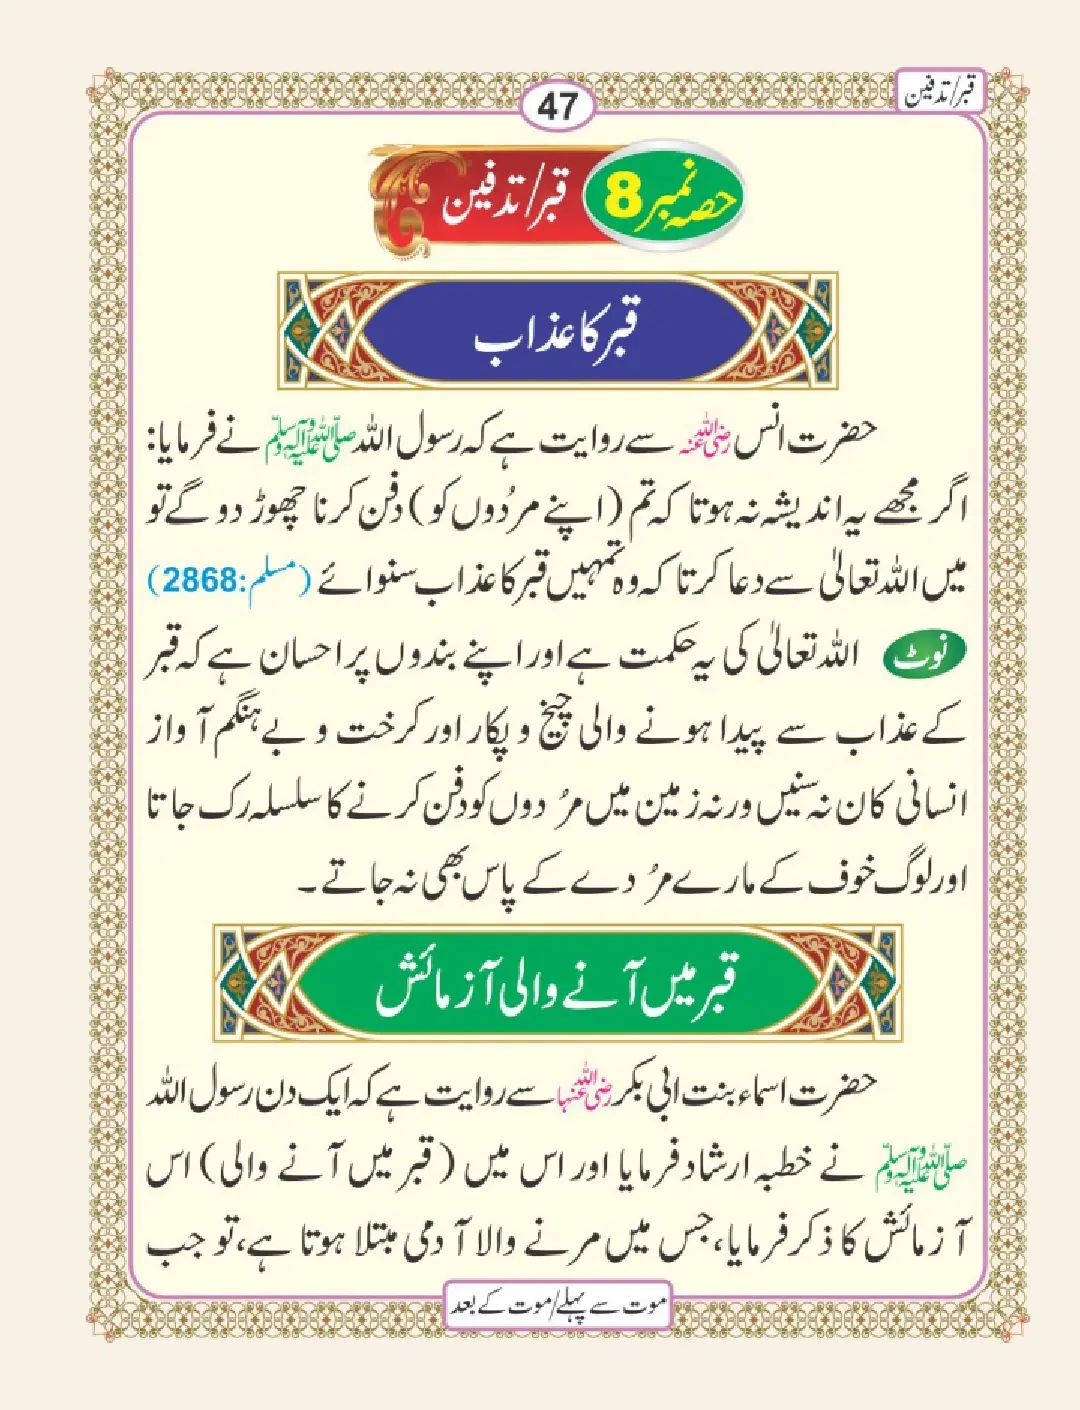 قبر/تدفین
47
حصہ نمبر 8 قبر/تدفین
قبر کا عذاب
حضرت انس رضی اللہ عنہ سے روایت ہے کہ رسول اللہ صلی اللہ علیہ وآلہ وسلم نے فرمایا:
اگر مجھے یہ اندیشہ نہ ہوتا کہ تم (اپنے مُردوں کو) دفن کرنا چھوڑ دو گے تو
میں اللہ تعالیٰ سے دعا کرتا کہ وہ تمہیں قبر کا عذاب سنوائے (مسلم:2868)
نوٹ اللہ تعالیٰ کی یہ حکمت ہے اور اپنے بندوں پر احسان ہے کہ قبر
کے عذاب سے پیدا ہونے والی چیخ و پکار اور کرخت و بے ہنگم آواز
انسانی کان نہ سنیں ورنہ زمین میں مُردوں کو دفن کرنے کا سلسلہ رک جاتا
اور لوگ خوف کے مارے مُردے کے پاس بھی نہ جاتے۔
قبر میں آنے والی آزمائش
حضرت اسماء بنت ابی بکر رضی اللہ عنہا سے روایت ہے کہ ایک دن رسول اللہ
صلی اللہ علیہ وآلہ وسلم نے خطبہ ارشاد فرمایا اور اس میں (قبر میں آنے والی) اس
آزمائش کا ذکر فرمایا، جس میں مرنے والا آدمی مبتلا ہوتا ہے، تو جب
موت سے پہلے/موت کے بعد